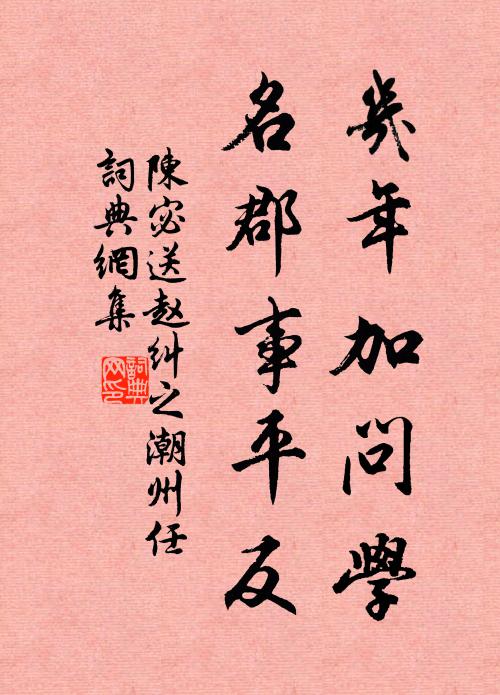 幾年加問學
名郡事平反
陳宓送赵糾之潮州任
詞典網集
詞典網印